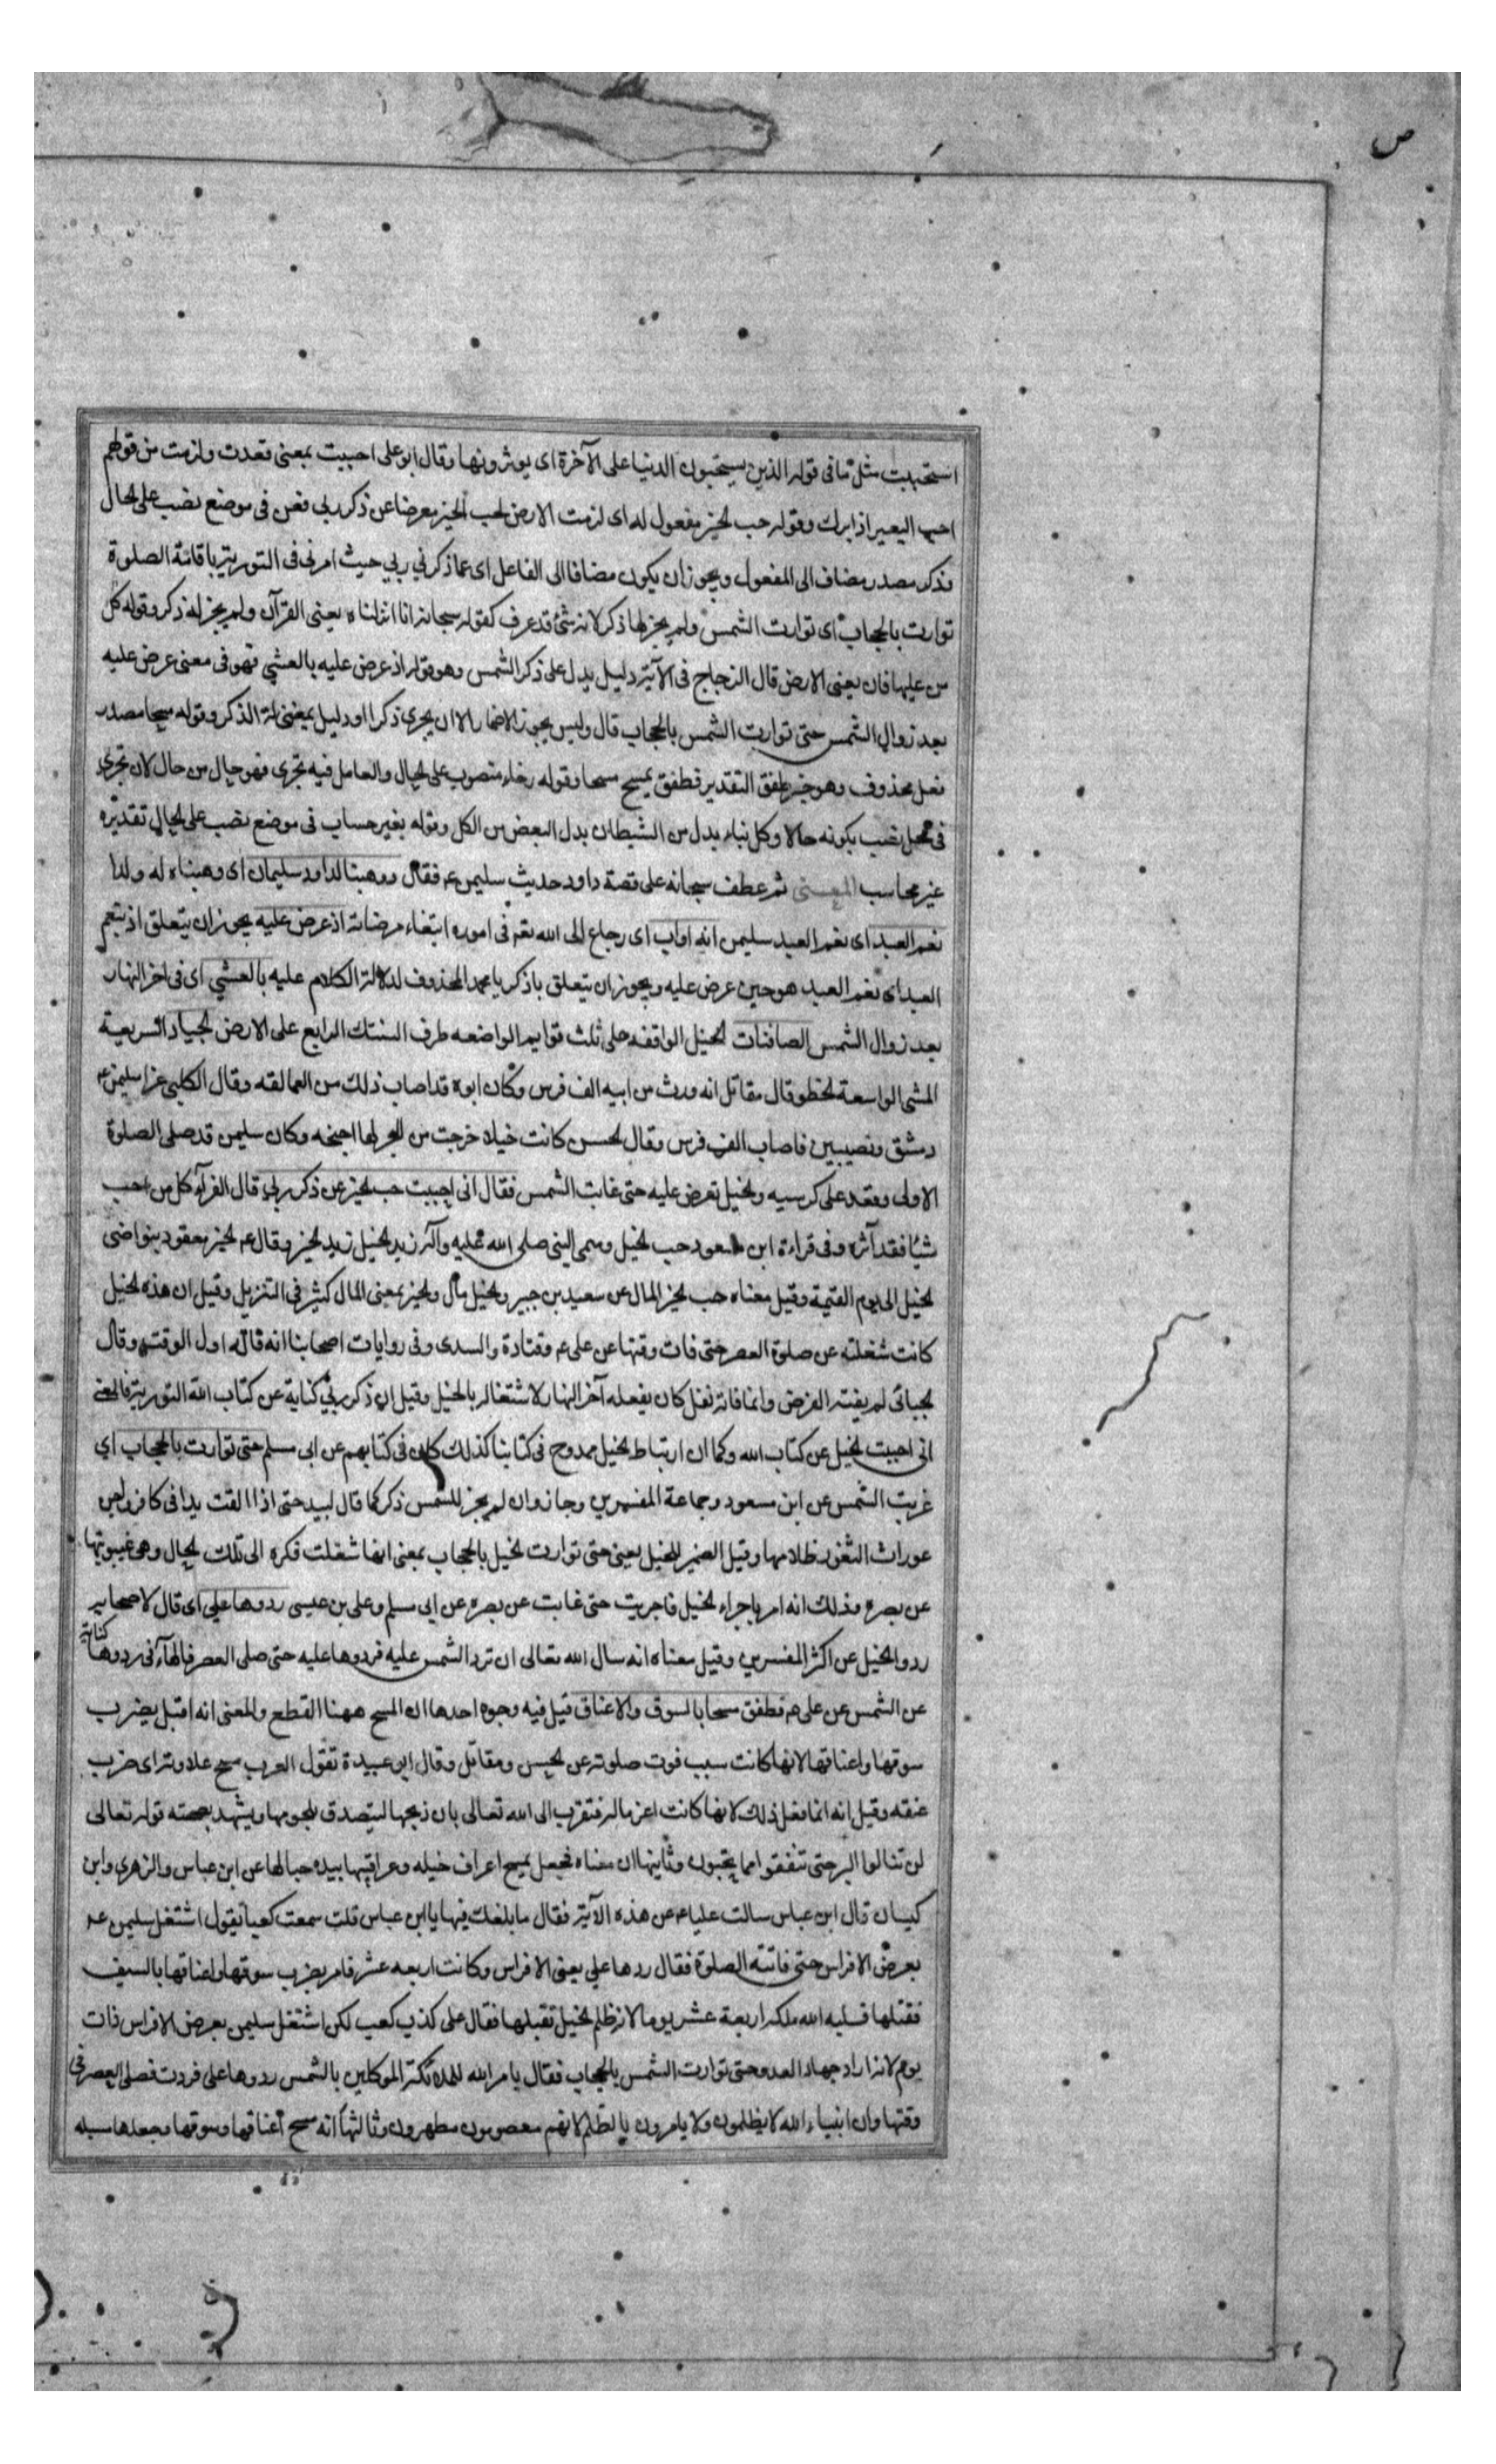 ص
استحببت مثل ما فى قوله الذين يستحبون الدنيا على الآخرة اى يوثرونها وقال ابو على احببت بمعنى قعدت ولزمت من قولهم
احب البعير اذا برك وقوله حب الخير مفعول له اى لزمت الارض لحب الخير معرضا عن ذكر ربى فعن فى موضع نصب على الحال
وذكر مصدر مضاف الى المفعول ويجوز ان يكون مضافا الى الفاعل اى عما ذكرني ربي حيث امرنى فى التورية باقامة الصلوة
توارت بالحجاب اى توارت الشمس ولم يجز لها ذكر لانه شئ قد عرف كقوله سبحانه انا انزلناه يعنى القرآن ولم يجز له ذكر وقوله كل
من عليها فان يعنى الارض قال الزجاج فى الآية دليل يدل على ذكر الشمس وهو قوله اذ عرض عليه بالعشي فهو فى معنى عرض عليه
بعد زوال الشمس حتى توارت الشمس بالحجاب قال وليس يجوز الاضمار الا ان يجرى ذكر او دليل بمعنزلة الذكر وقوله مسحا مصدر
فعل محذوف وهو خبر طفق التقدير فطفق يمسح مسحا وقوله رخاء منصوب على الحال والعامل فيه تجرى فهو حال من حال لان تجرى
فى محل نصب بكونه حالا وكل بناء بدل من الشيطان بدل البعض من الكل وقوله بغير حساب فى موضع نصب على الحال تقديره
غير محاسب المعنى ثم عطف سبحانه على قصة داود حديث سليمن عم فقال ووهبنا لداود سليمان اى وهبناه له ولدا
نعم العبد اى نعم العبد سليمن انه اواب اى رجاع الى الله تعم فى اموره ابتغاء مرضاته اذ عرض عليه يجوز ان يتعلق اذ بنعم
العبد اى نعم العبد هو حين عرض عليه ويجوز ان يتعلق باذكر يا محمد المحذوف لدلالة الكلام عليه بالعشي اى فى اخر النهار
بعد زوال الشمس الصافنات الخيل الواقفه على ثلث قوايم الواضعه طرف السنبك الرابع على الارض الجياد السريعة
المشى الواسعة الخطو قال مقاتل انه ورث من ابيه الف فرس وكان ابوه قد اصاب ذلك من العمالقه وقال الكلبى غزا سليمن عم
دمشق ونصيبين فاصاب الف فرس وقال الحسن كانت خيلا خرجت من البحر لها اجنحه وكان سليمن قد صلى الصلوة
الاولى وقعد على كرسيه والخيل تعرض عليه حتى غابت الشمس فقال انى احببت حب الخير عن ذكر ربى قال الفرآء كل من احب
شيئا فقد آثره وفى قراءة ابن مسعود حب الخيل وسمى النبى صلى الله عليه وآله زيد الخيل زيد الخير وقال عم الخير معقود بنواصى
الخيل الى يوم القيمة وقيل معناه حب الخير المال عن سعيد بن جبير والخيل مال والخير بمعنى المال كثير فى التنزيل وقيل ان هذه الخيل
كانت شغلته عن صلوة العصر حتى فات وقتها عن على عم وقتادة والسدى وفى روايات اصحابنا انه فاته اول الوقت وقال
الجبائى لم يفته الفرض وانما فاته نفل كان يفعله آخر النهار لاشتغاله بالخيل وقيل ان ذكر ربي كناية عن كتاب الله التورية فالمعنى
انى احببت الخيل عن كتاب الله وكما ان ارتباط الخيل ممدوح فى كتابنا كذلك كان فى كتابهم عن ابى مسلم حتى توارت بالحجاب اى
غربت الشمس عن ابن مسعود وجماعة المفسرين وجاز وان لم يجز للشمس ذكر كما قال لبيد حتى اذا القت يدا فى كافر واجن
عورات الثغور ظلامها وقيل الضمير للخيل يعنى حتى توارت الخيل بالحجاب بمعنى انها شغلت فكره الى تلك الحال وهى غيبوبتها
عن بصره وذلك انه امر باجراء الخيل فاجريت حتى غابت عن بصره عن ابى مسلم وعلى بن عيسى ردوها على اى قال لاصحابه
ردوا الخيل عن اكثر المفسرين وقيل معناه انه سال الله تعالى ان ترد الشمس عليه فردوها عليه حتى صلى العصر فالهآء فى ردوها كناية
عن الشمس عن على عم فطفق مسحا بالسوق والاعناق قيل فيه وجوه احدها ان المسح ههنا القطع والمعنى انه اقبل يضرب
سوقها واعناقها لانها كانت سبب فوت صلوته عن الحسن ومقاتل وقال ابو عبيدة تقول العرب مسح علاوته اى ضرب
عنقه وقيل انه انما فعل ذلك لانها كانت اعز ماله فتقرب الى الله تعالى بان ذبحها ليتصدق بلحومها ويشهد بصحته قوله تعالى
لن تنالوا البر حتى تنفقوا مما تحبون وثانيها ان معناه فجعل يمسح اعراف خيله وعراقيبها بيده حبا لها عن ابن عباس والزهرى وابن
كيسان قال ابن عباس سالت عليا عم عن هذه الآية فقال ما بلغك فيها يا ابن عباس قلت سمعت كعبا يقول اشتغل سليمن عم
بعرض الافراس حتى فاتته الصلوة فقال ردها على يعنى الافراس وكانت اربعه عشر فامر بضرب سوقها واعناقها بالسيف
فقتلها فسلبه الله ملكه اربعة عشر يوما لانه ظلم الخيل بقتلها فقال على كذب كعب لكن اشتغل سليمن بعرض الافراس ذات
يوم لانه اراد جهاد العدو حتى توارت الشمس بالحجاب فقال يامر الله للملائكة الموكلين بالشمس ردوها على فردت فصلى العصر فى
وقتها وان انبياء الله لا يظلمون ولا يامرون بالظلم لانهم معصومون مطهرون وثالثها انه مسح اعناقها وسوقها وجعلها مسبله